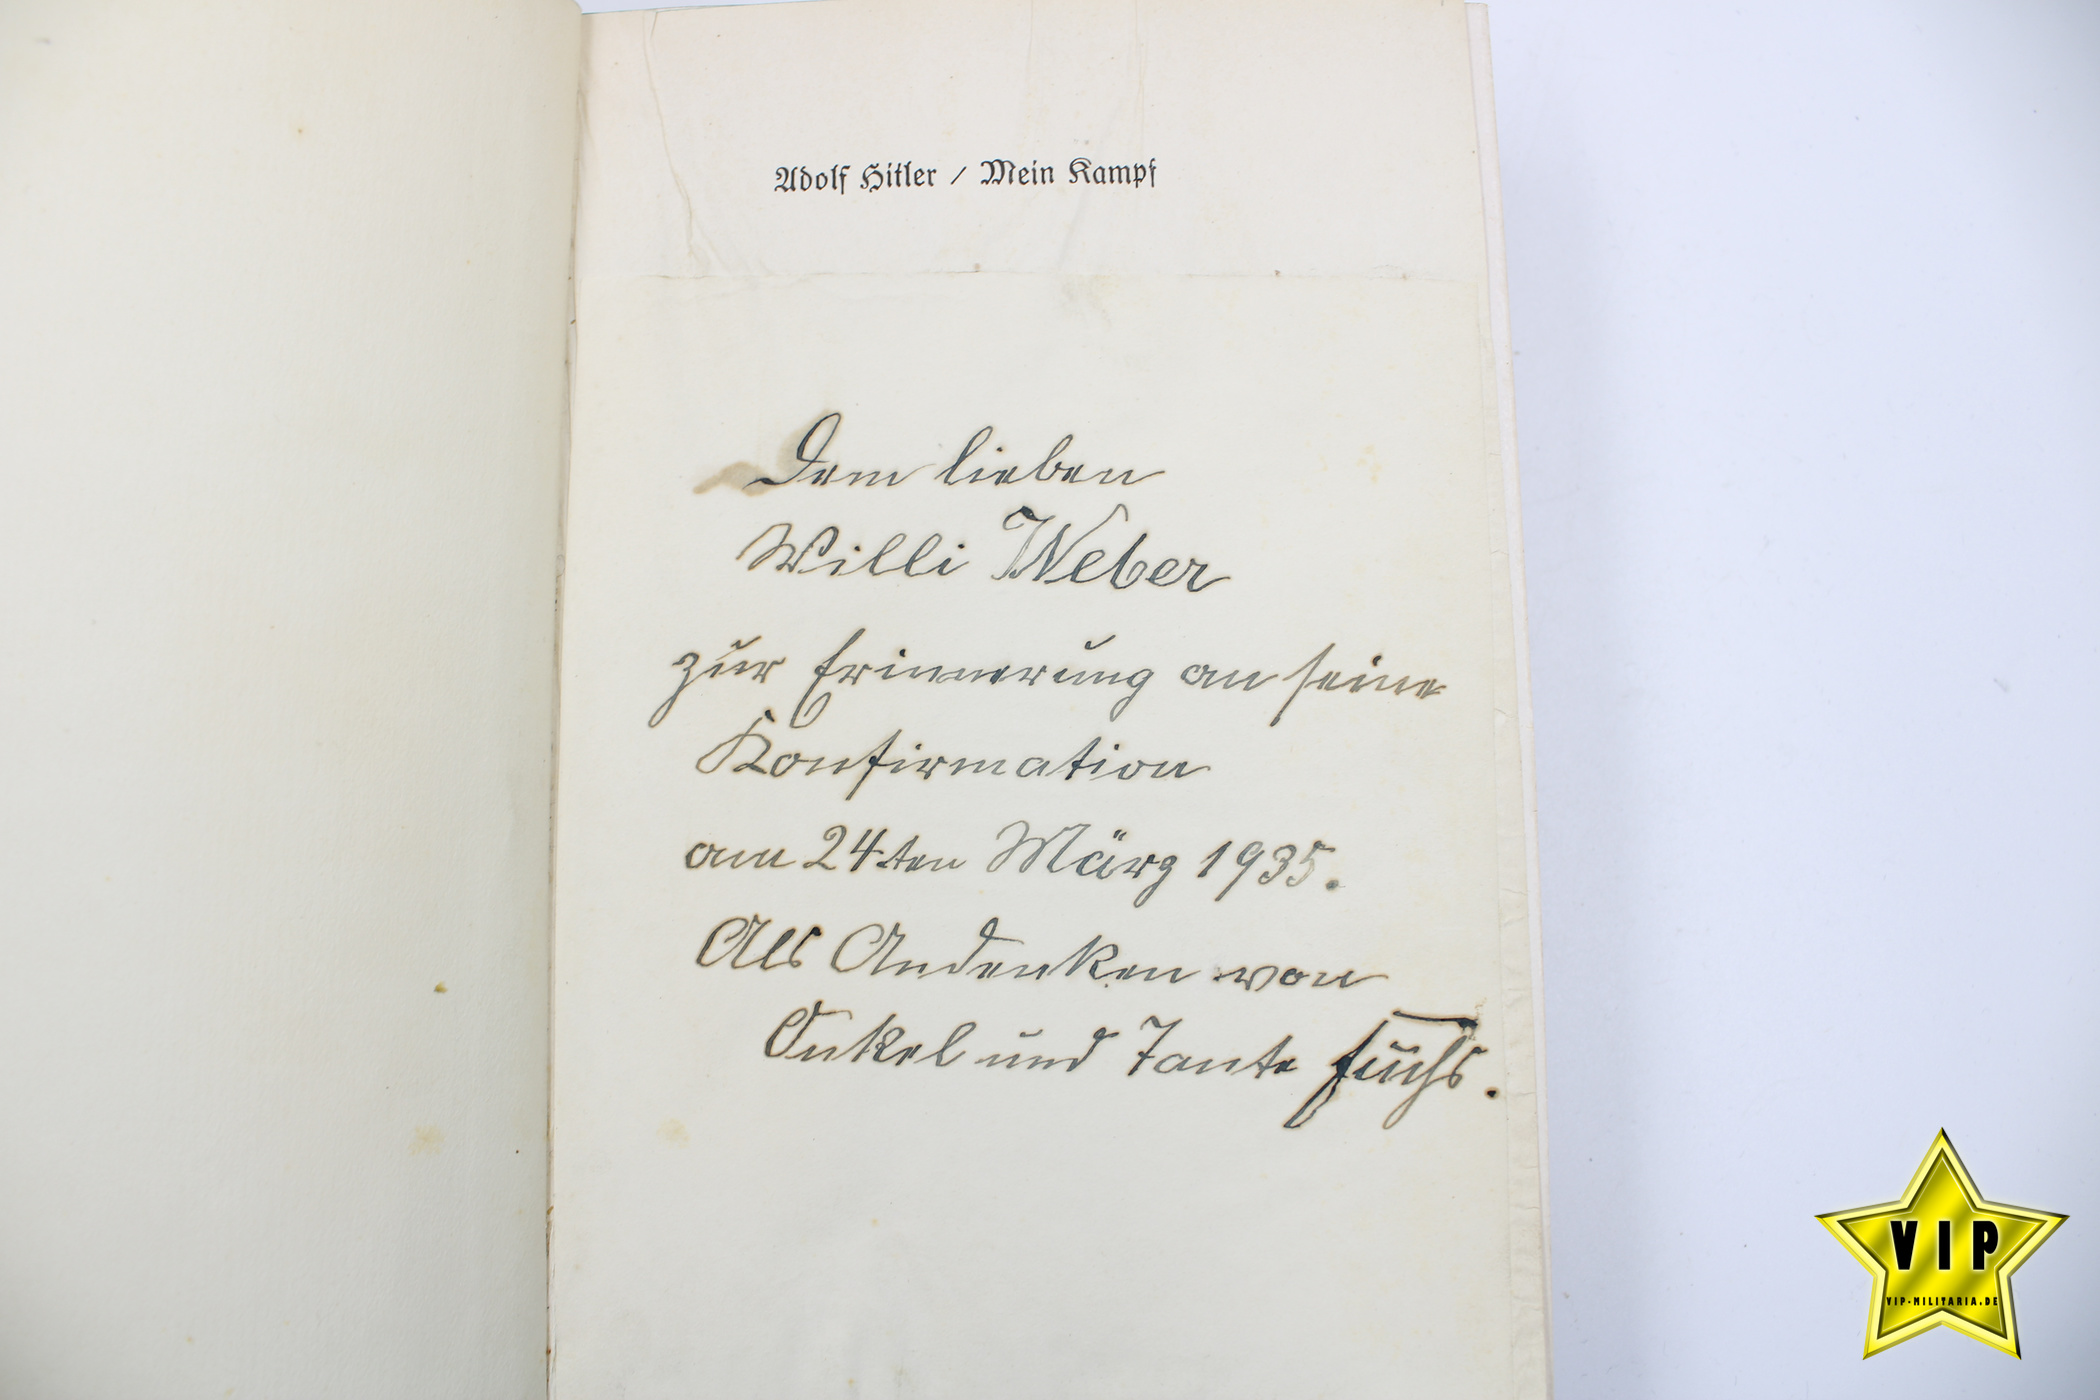 Adolf Hitler / Mein Kampf
Dem lieben
Willi Weber
zur Erinnerung an seine
Konfirmation
am 24ten März 1935.
Als Andenken von
Onkel und Tante Fuchs.
VIP
VIP-MILITARIA.DE